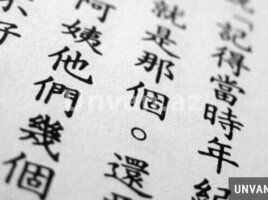 說「記得當時年紀
就是那個。還
阿姨他們幾個
子
UNVAN